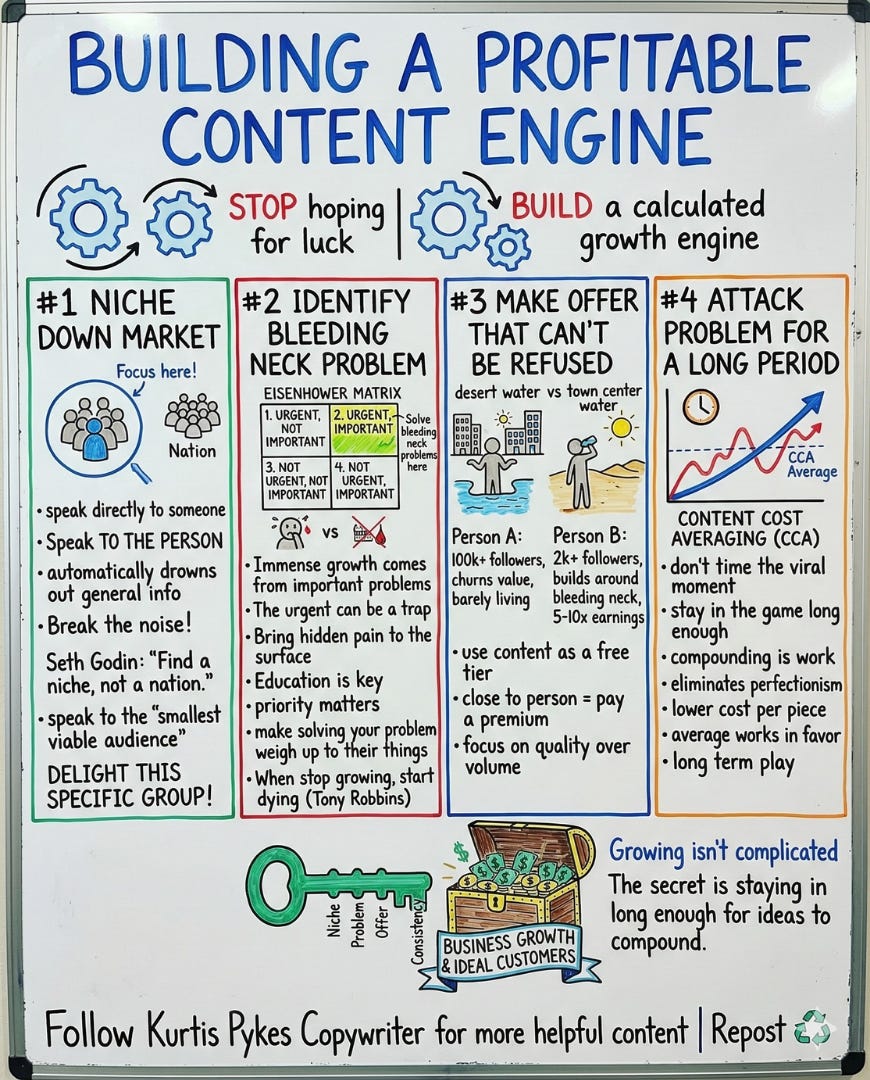 BUILDING A PROFITABLE
CONTENT ENGINE
STOP hoping
for luck
BUILD a calculated
growth engine
#1 NICHE
DOWN MARKET
Focus here!
Nation
• speak directly to someone
• Speak TO THE PERSON
• automatically drowns
out general info
• Break the noise!
Seth Godin: "Find a
niche, not a nation."
• speak to the "smallest
viable audience"
DELIGHT THIS
SPECIFIC GROUP!
#2 IDENTIFY
BLEEDING
NECK PROBLEM
EISENHOWER MATRIX
1. URGENT,
NOT
IMPORTANT
2. URGENT,
IMPORTANT
3. NOT
URGENT, NOT
IMPORTANT
4. NOT
URGENT,
IMPORTANT
Solve
bleeding
neck
problems
here
vs
• Immense growth comes
from important problems
• The urgent can be a trap
• Bring hidden pain to the
surface
• Education is key
• priority matters
• make solving your problem
weigh up to their things
• When stop growing, start
dying (Tony Robbins)
#3 MAKE OFFER
THAT CAN'T
BE REFUSED
desert water vs town center
water
Person A:
100k+ followers,
churns value,
barely living
Person B:
2k+ followers,
builds around
bleeding neck,
5-10x earnings
• use content as a free
tier
• close to person = pay
a premium
• focus on quality over
volume
#4 ATTACK
PROBLEM FOR
A LONG PERIOD
CCA
Average
CONTENT COST
AVERAGING (CCA)
• don't time the viral
moment
• stay in the game long
enough
• compounding is work
• eliminates perfectionism
• lower cost per piece
• average works in favor
• long term play
Niche
Problem
Offer
Consistency
BUSINESS GROWTH
& IDEAL CUSTOMERS
Growing isn't complicated
The secret is staying in
long enough for ideas to
compound.
Follow Kurtis Pykes Copywriter for more helpful content | Repost